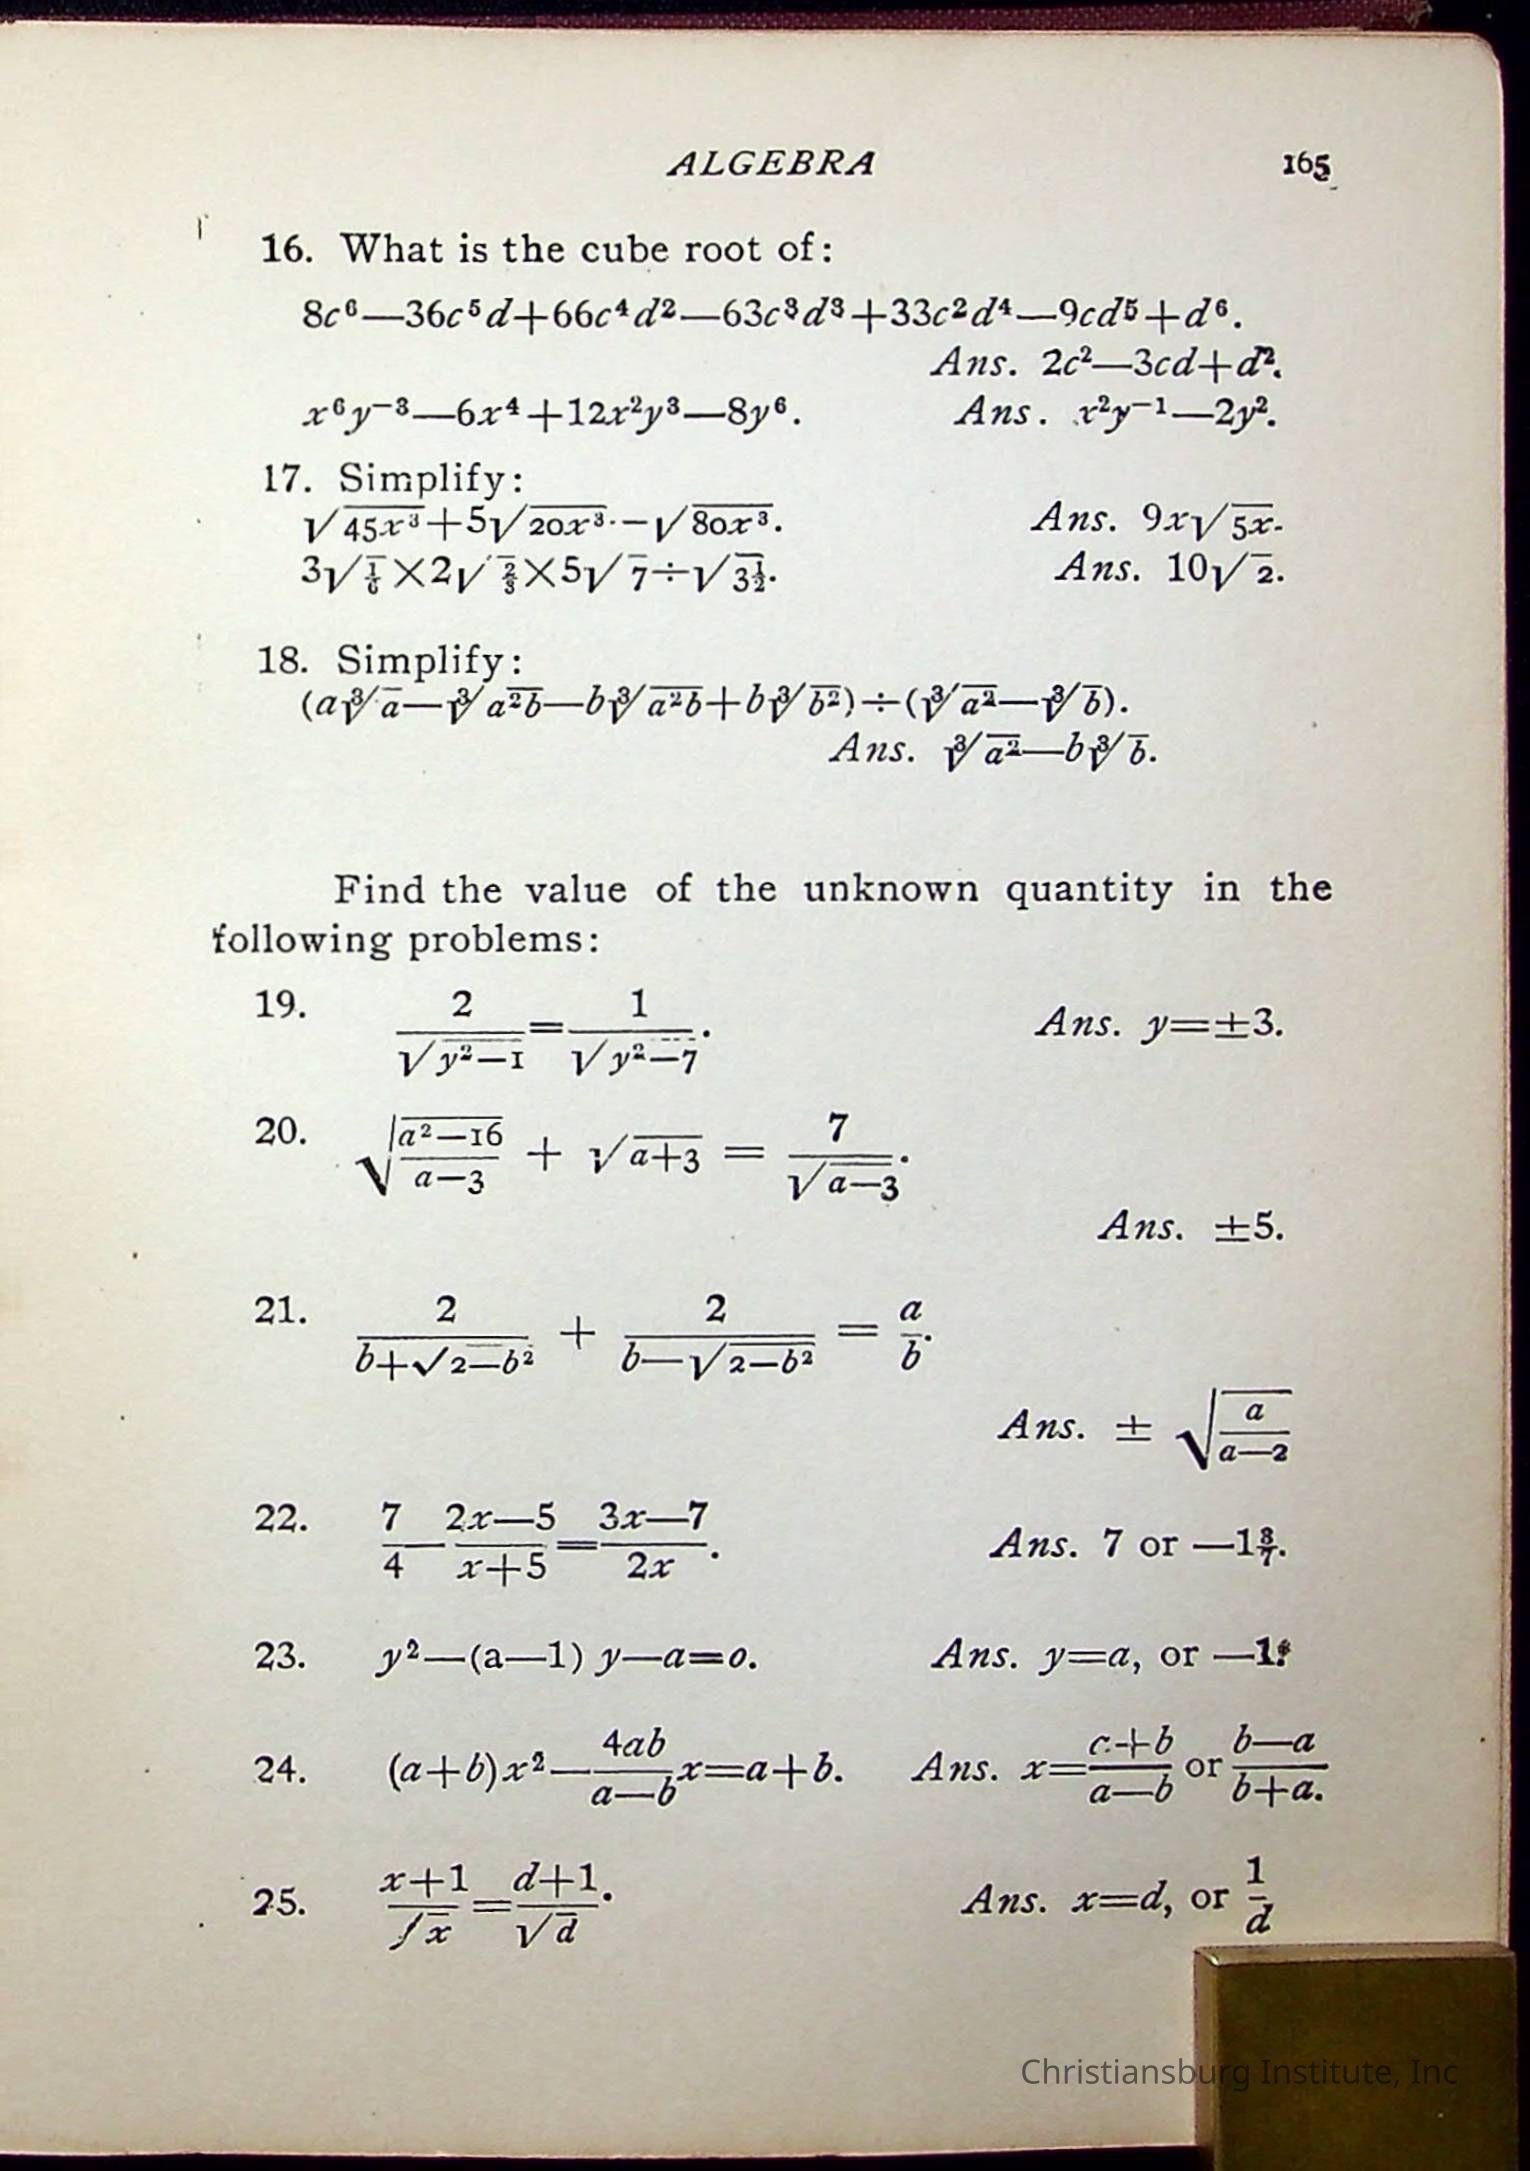 ALGEBRA 165
16. What is the cube root of:
8c⁶—36c⁵d+66c⁴d²—63c³d³+33c²d⁴—9cd⁵+d⁶.
Ans. 2c²—3cd+d².
x⁶y⁻³—6x⁴+12x²y³—8y⁶. Ans. x²y⁻¹—2y².
17. Simplify:
√45x³+5√20x³—√80x³. Ans. 9x√5x.
3√⅙×2√⅔×5√7÷√3½. Ans. 10√2.
18. Simplify:
(a∛a—∛a²b—b∛a²b+b∛b²)÷(∛a²—∛b).
Ans. ∛a²—b∛b.
Find the value of the unknown quantity in the
following problems:
19. 2/√(y²—1)=1/√(y²—7). Ans. y=±3.
20. √((a²—16)/(a—3)) + √(a+3) = 7/√(a—3).
Ans. ±5.
21. 2/(b+√(2—b²)) + 2/(b—√(2—b²)) = a/b.
Ans. ± √(a/(a—2))
22. 7/4—(2x—5)/(x+5)=(3x—7)/2x. Ans. 7 or —1 3/7.
23. y²—(a—1) y—a=o. Ans. y=a, or —1.
24. (a+b)x²—4ab/(a—b)x=a+b. Ans. x=(c+b)/(a—b) or (b—a)/(b+a).
25. (x+1)/√x=(d+1)/√d. Ans. x=d, or 1/d
Christiansburg Institute, Inc